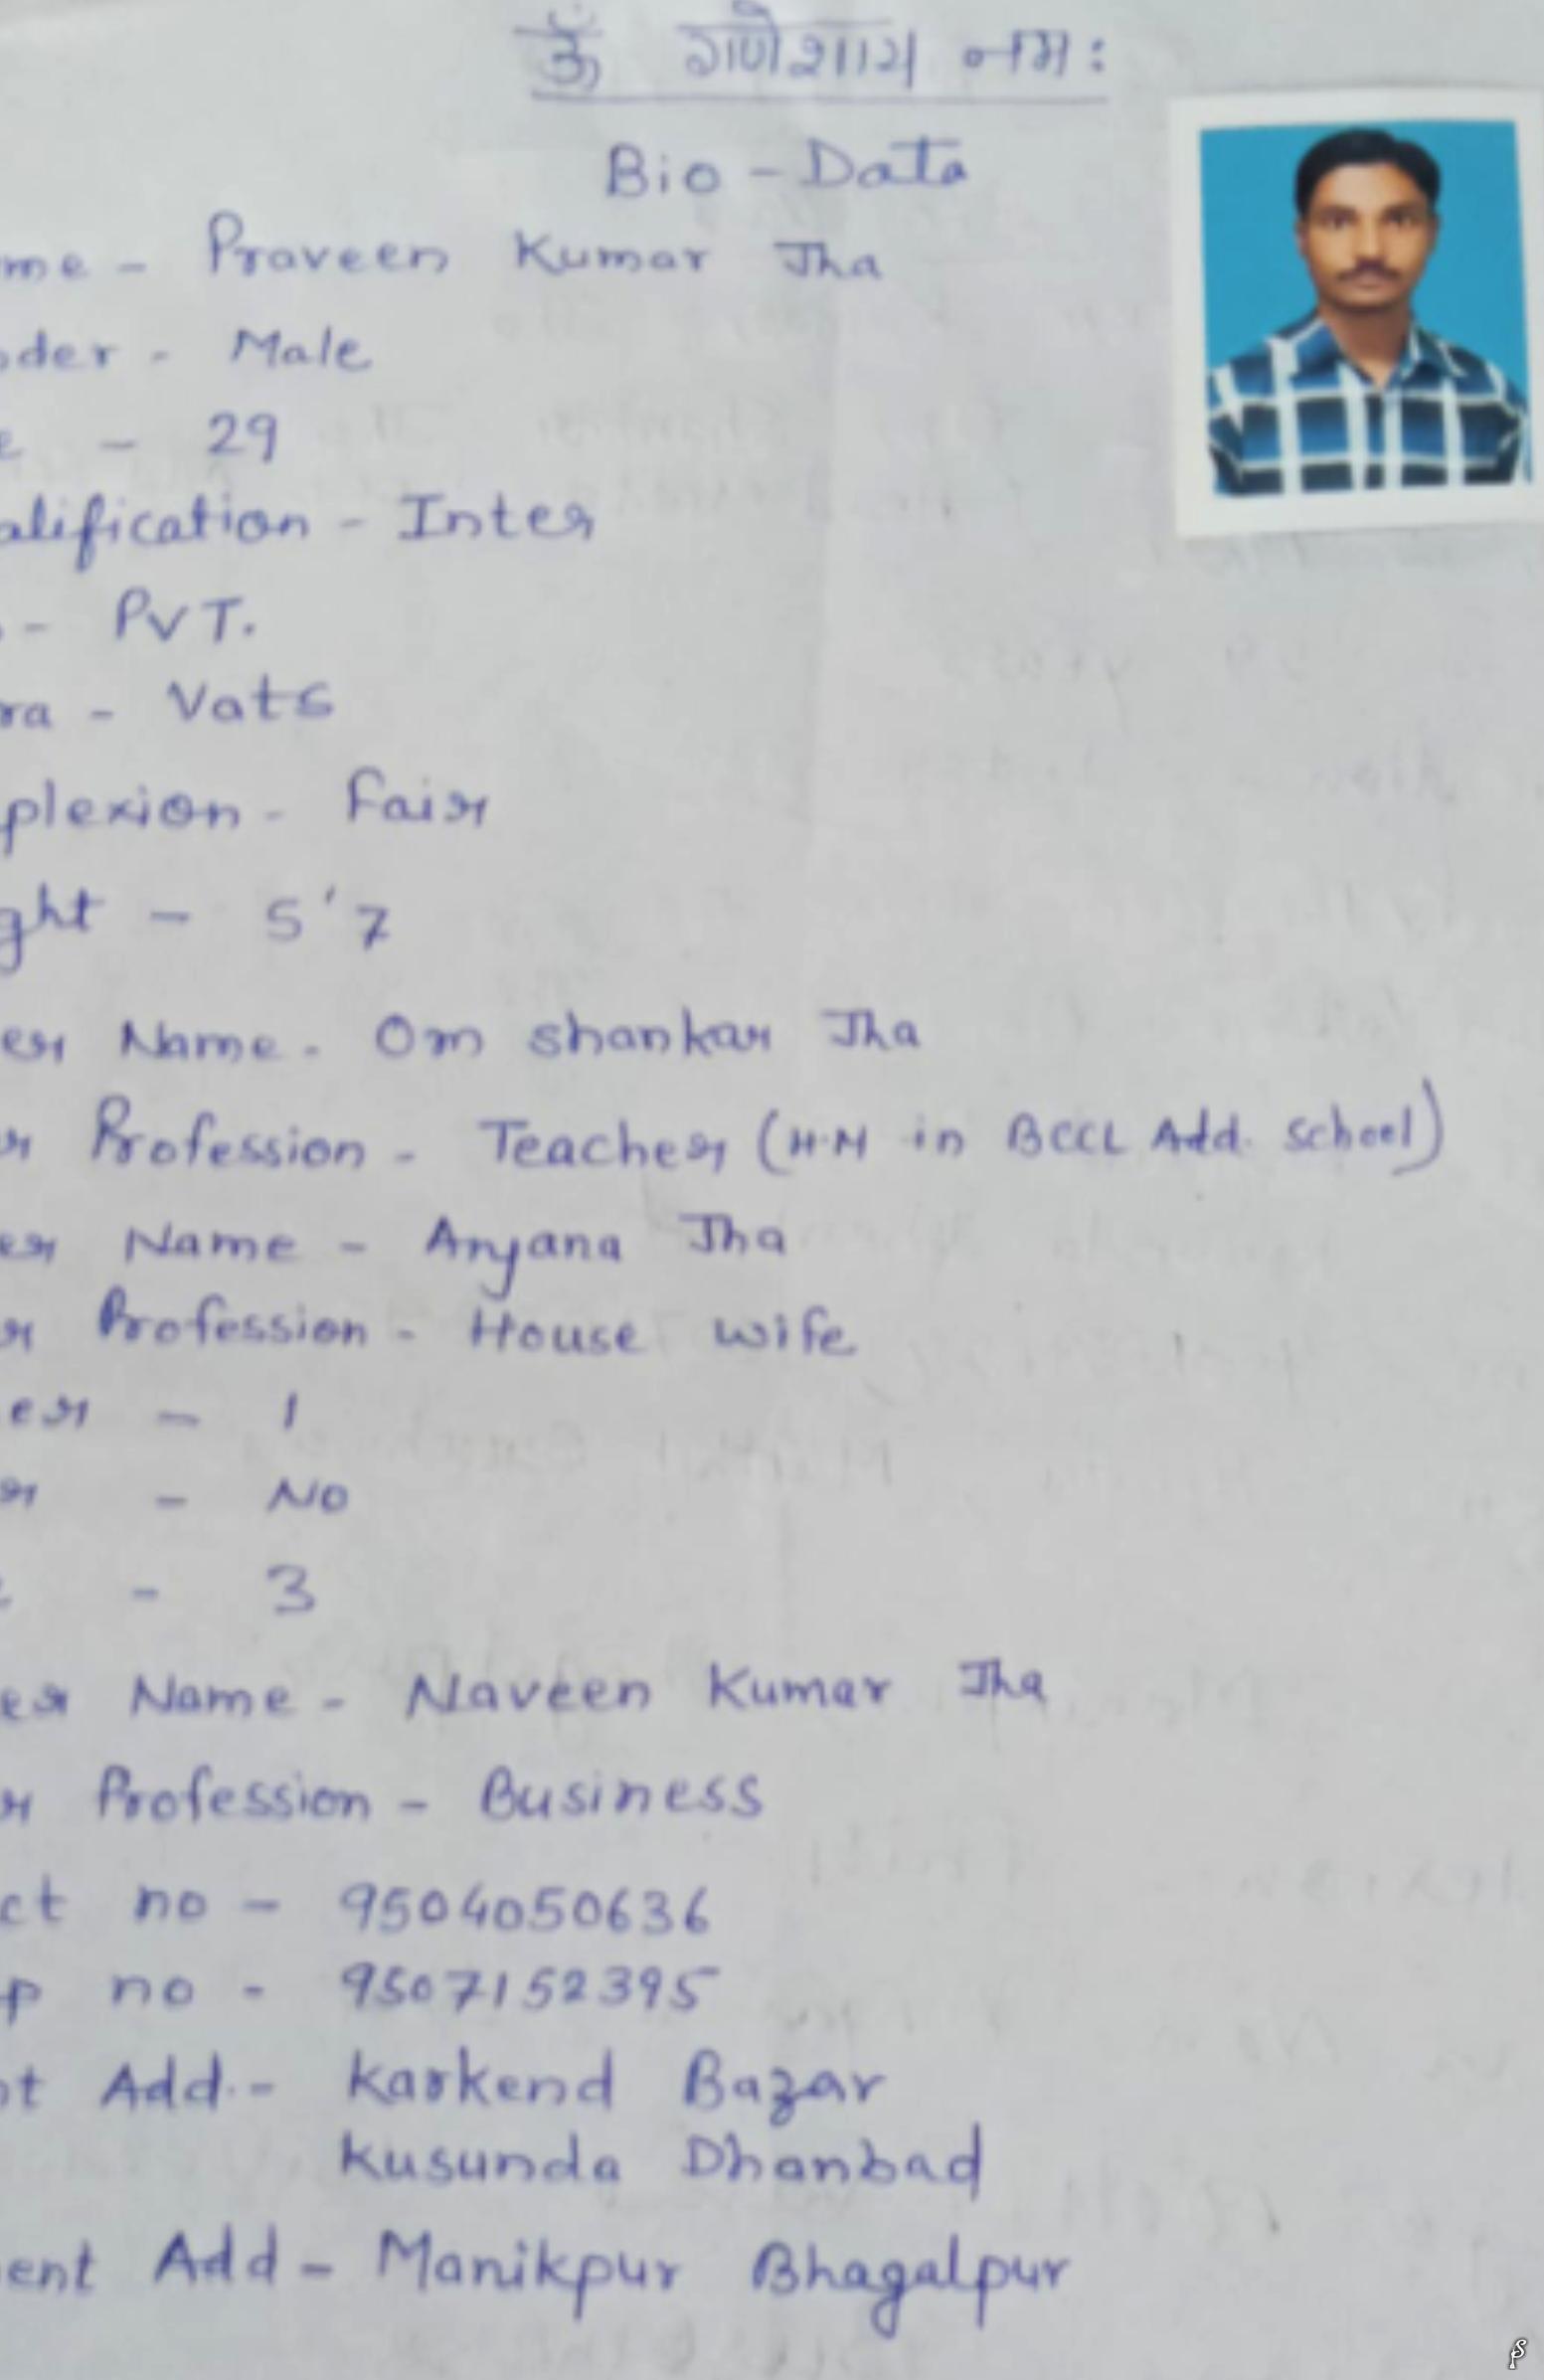 ॐ गणेशाय नमः
Bio - Data
me - Praveen Kumar Jha
der - Male
e - 29
alification - Inter
- PVT.
ra - Vats
plexion - Fair
ght - 5'7
er Name - Om shankar Jha
r Profession - Teacher (H.M in BCCL Add. School)
er Name - Anjana Jha
r Profession - House wife
er - 1
r - No
- 3
er Name - Naveen Kumar Jha
r Profession - Business
ct no - 9504050636
p no - 9507152395
t Add.- Karkend Bazar
Kusunda Dhanbad
ent Add - Manikpur Bhagalpur